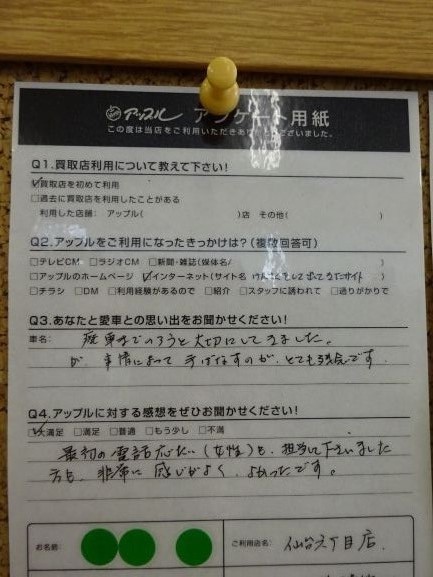 アップル アンケート用紙
この度は当店をご利用いただきありがとうございました。
Q1.買取店利用について教えて下さい!
☑買取店を初めて利用
□過去に買取店を利用したことがある
利用した店舗: アップル( )店 その他( )
Q2.アップルをご利用になったきっかけは?(複数回答可)
□テレビCM □ラジオCM □新聞・雑誌(媒体名/ )
□アップルのホームページ ☑インターネット(サイト名 )
□チラシ □DM □利用経験があるので □紹介 □スタッフに誘われて □通りがかりで
Q3.あなたと愛車との思い出をお聞かせください!
車名: 廃車までのろうと大切にしてきました。
が、事情によって手ばなすのが、とても残念です
Q4.アップルに対する感想をぜひお聞かせください!
☑大満足 □満足 □普通 □もう少し □不満
最初の電話応たい(女性)も、担当して下さいました
方も、非常に感じがよく、よかったです。
お名前
ご利用店名: 仙台六丁目店